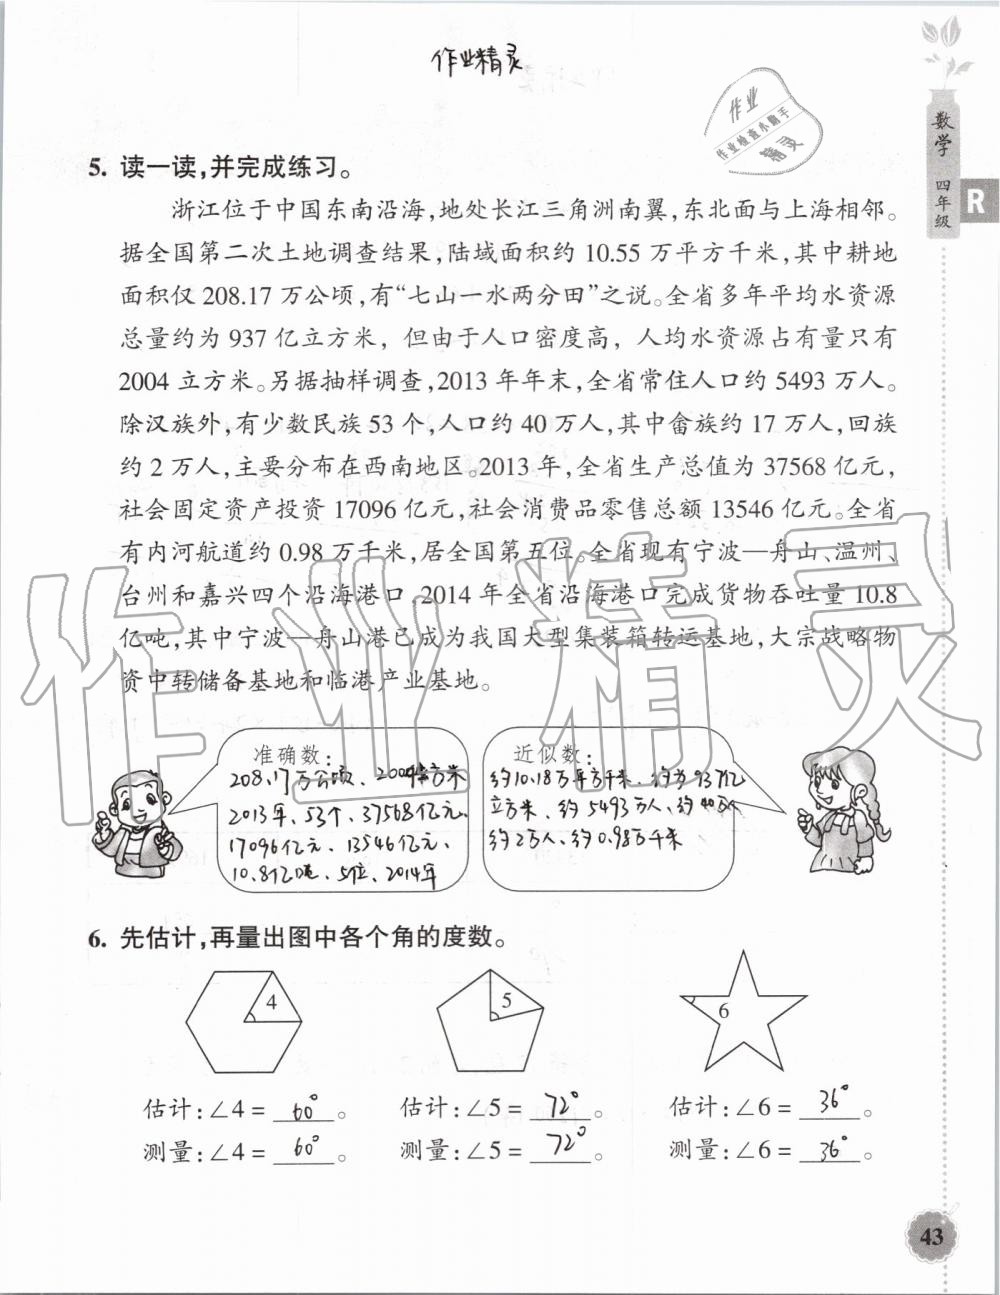 作业精灵
作业
作业检查小助手
精灵
数学 四年级
R
5. 读一读,并完成练习。
浙江位于中国东南沿海,地处长江三角洲南翼,东北面与上海相邻。
据全国第二次土地调查结果,陆域面积约 10.55 万平方千米,其中耕地
面积仅 208.17 万公顷,有“七山一水两分田”之说。全省多年平均水资源
总量约为 937 亿立方米,但由于人口密度高,人均水资源占有量只有
2004 立方米。另据抽样调查,2013 年年末,全省常住人口约 5493 万人。
除汉族外,有少数民族 53 个,人口约 40 万人,其中畲族约 17 万人,回族
约 2 万人,主要分布在西南地区。2013 年,全省生产总值为 37568 亿元,
社会固定资产投资 17096 亿元,社会消费品零售总额 13546 亿元。全省
有内河航道约 0.98 万千米,居全国第五位。全省现有宁波—舟山、温州、
台州和嘉兴四个沿海港口,2014 年全省沿海港口完成货物吞吐量 10.8
亿吨,其中宁波—舟山港已成为我国大型集装箱转运基地,大宗战略物
资中转储备基地和临港产业基地。
作业精灵
准确数:
208.17万公顷、2004立方米
2013年、53个、37568亿元、
17096亿元、13546亿元、
10.8亿吨、5位、2014年
近似数:
约10.18万平方千米、约为937亿
立方米、约5493万人、约40万人
约2万人、约0.98万千米
6. 先估计,再量出图中各个角的度数。
4
5
6
估计:∠4= 60° 。 估计:∠5= 72° 。 估计:∠6= 36° 。
测量:∠4= 60° 。 测量:∠5= 72° 。 测量:∠6= 36° 。
43